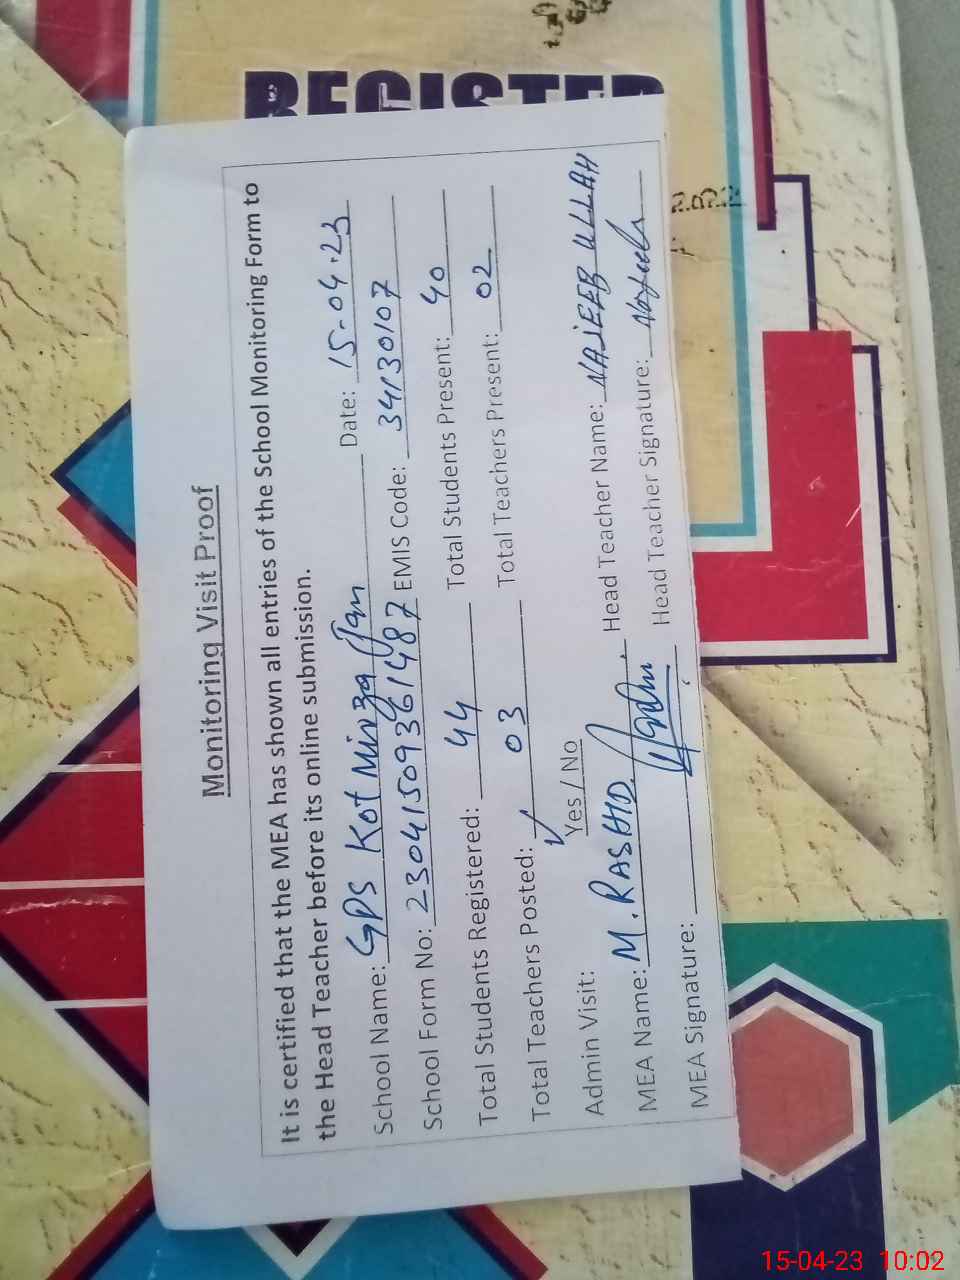 REGISTER
2022
Monitoring Visit Proof
It is certified that the MEA has shown all entries of the School Monitoring Form to
the Head Teacher before its online submission.
School Name: GPS Kot Mirza Jan Date: 15-04-23
School Form No: 230415093614 87 EMIS Code: 34130107
Total Students Registered: 44 Total Students Present: 40
Total Teachers Posted: 03 Total Teachers Present: 02
Admin Visit: ✓ Yes / No
MEA Name: M. RASHID Head Teacher Name: NAJEEB ULLAH
MEA Signature: Head Teacher Signature:
15-04-23 10:02